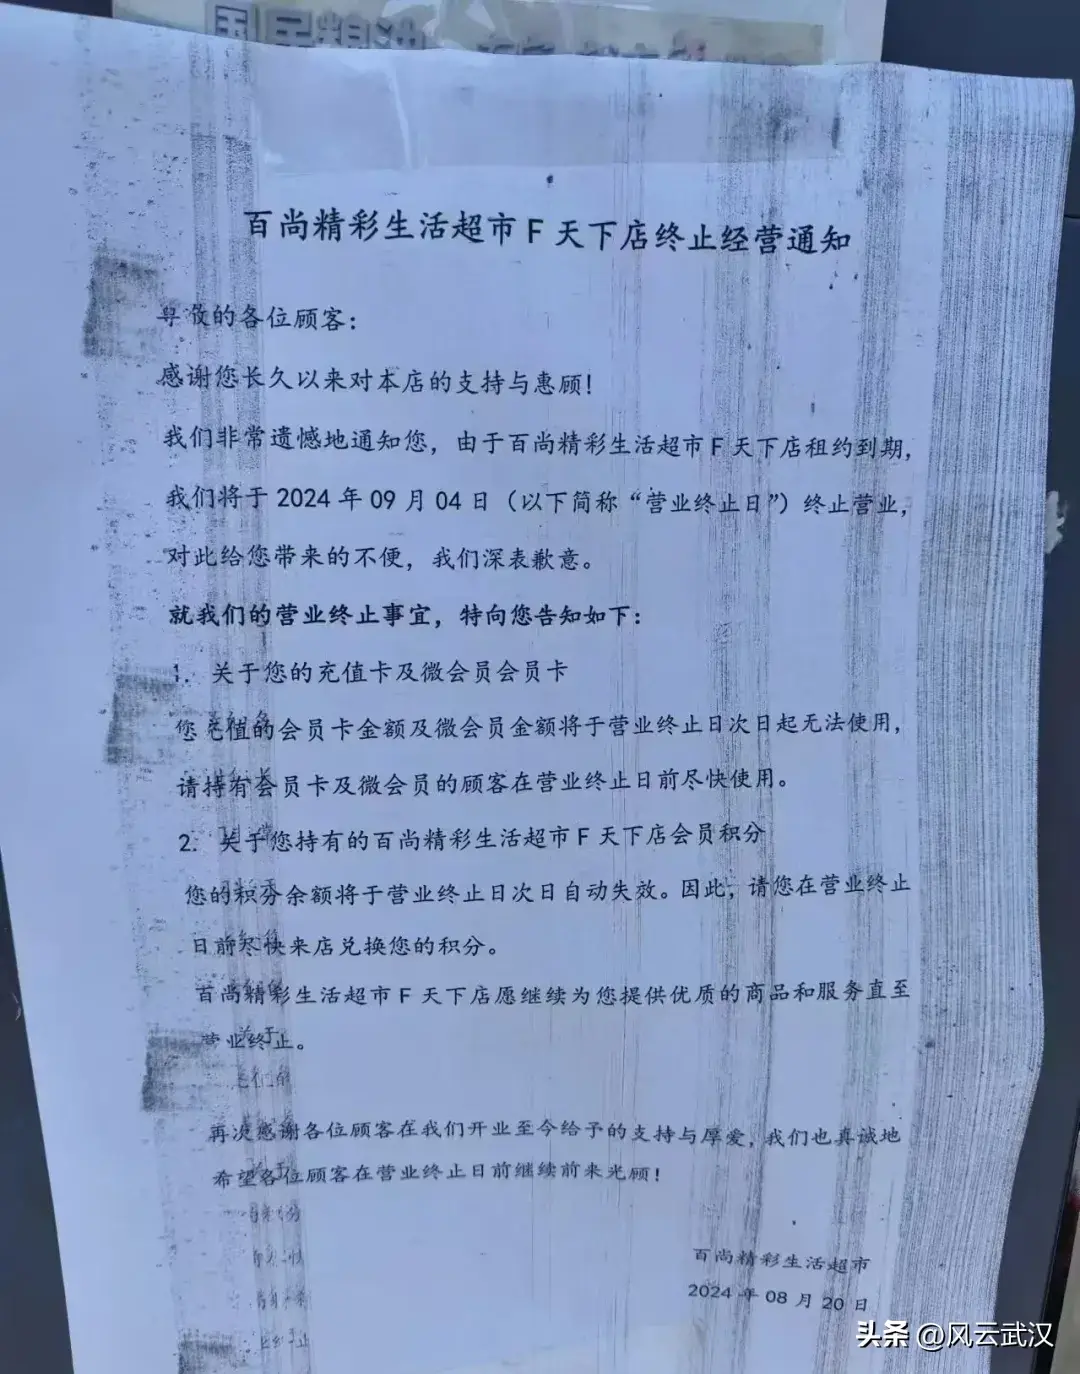 百尚精彩生活超市F天下店终止经营通知
尊敬的各位顾客：
感谢您长久以来对本店的支持与惠顾！
我们非常遗憾地通知您，由于百尚精彩生活超市F天下店租约到期，
我们将于2024年09月04日（以下简称“营业终止日”）终止营业，
对此给您带来的不便，我们深表歉意。
就我们的营业终止事宜，特向您告知如下：
1. 关于您的充值卡及微会员会员卡
您充值的会员卡金额及微会员金额将于营业终止日次日起无法使用，
请持有会员卡及微会员的顾客在营业终止日前尽快使用。
2. 关于您持有的百尚精彩生活超市F天下店会员积分
您的积分余额将于营业终止日次日自动失效。因此，请您在营业终止
日前尽快来店兑换您的积分。
百尚精彩生活超市F天下店愿继续为您提供优质的商品和服务直至
营业终止。
再次感谢各位顾客在我们开业至今给予的支持与厚爱，我们也真诚地
希望各位顾客在营业终止日前继续前来光顾！
百尚精彩生活超市
2024年08月20日
头条 @风云武汉